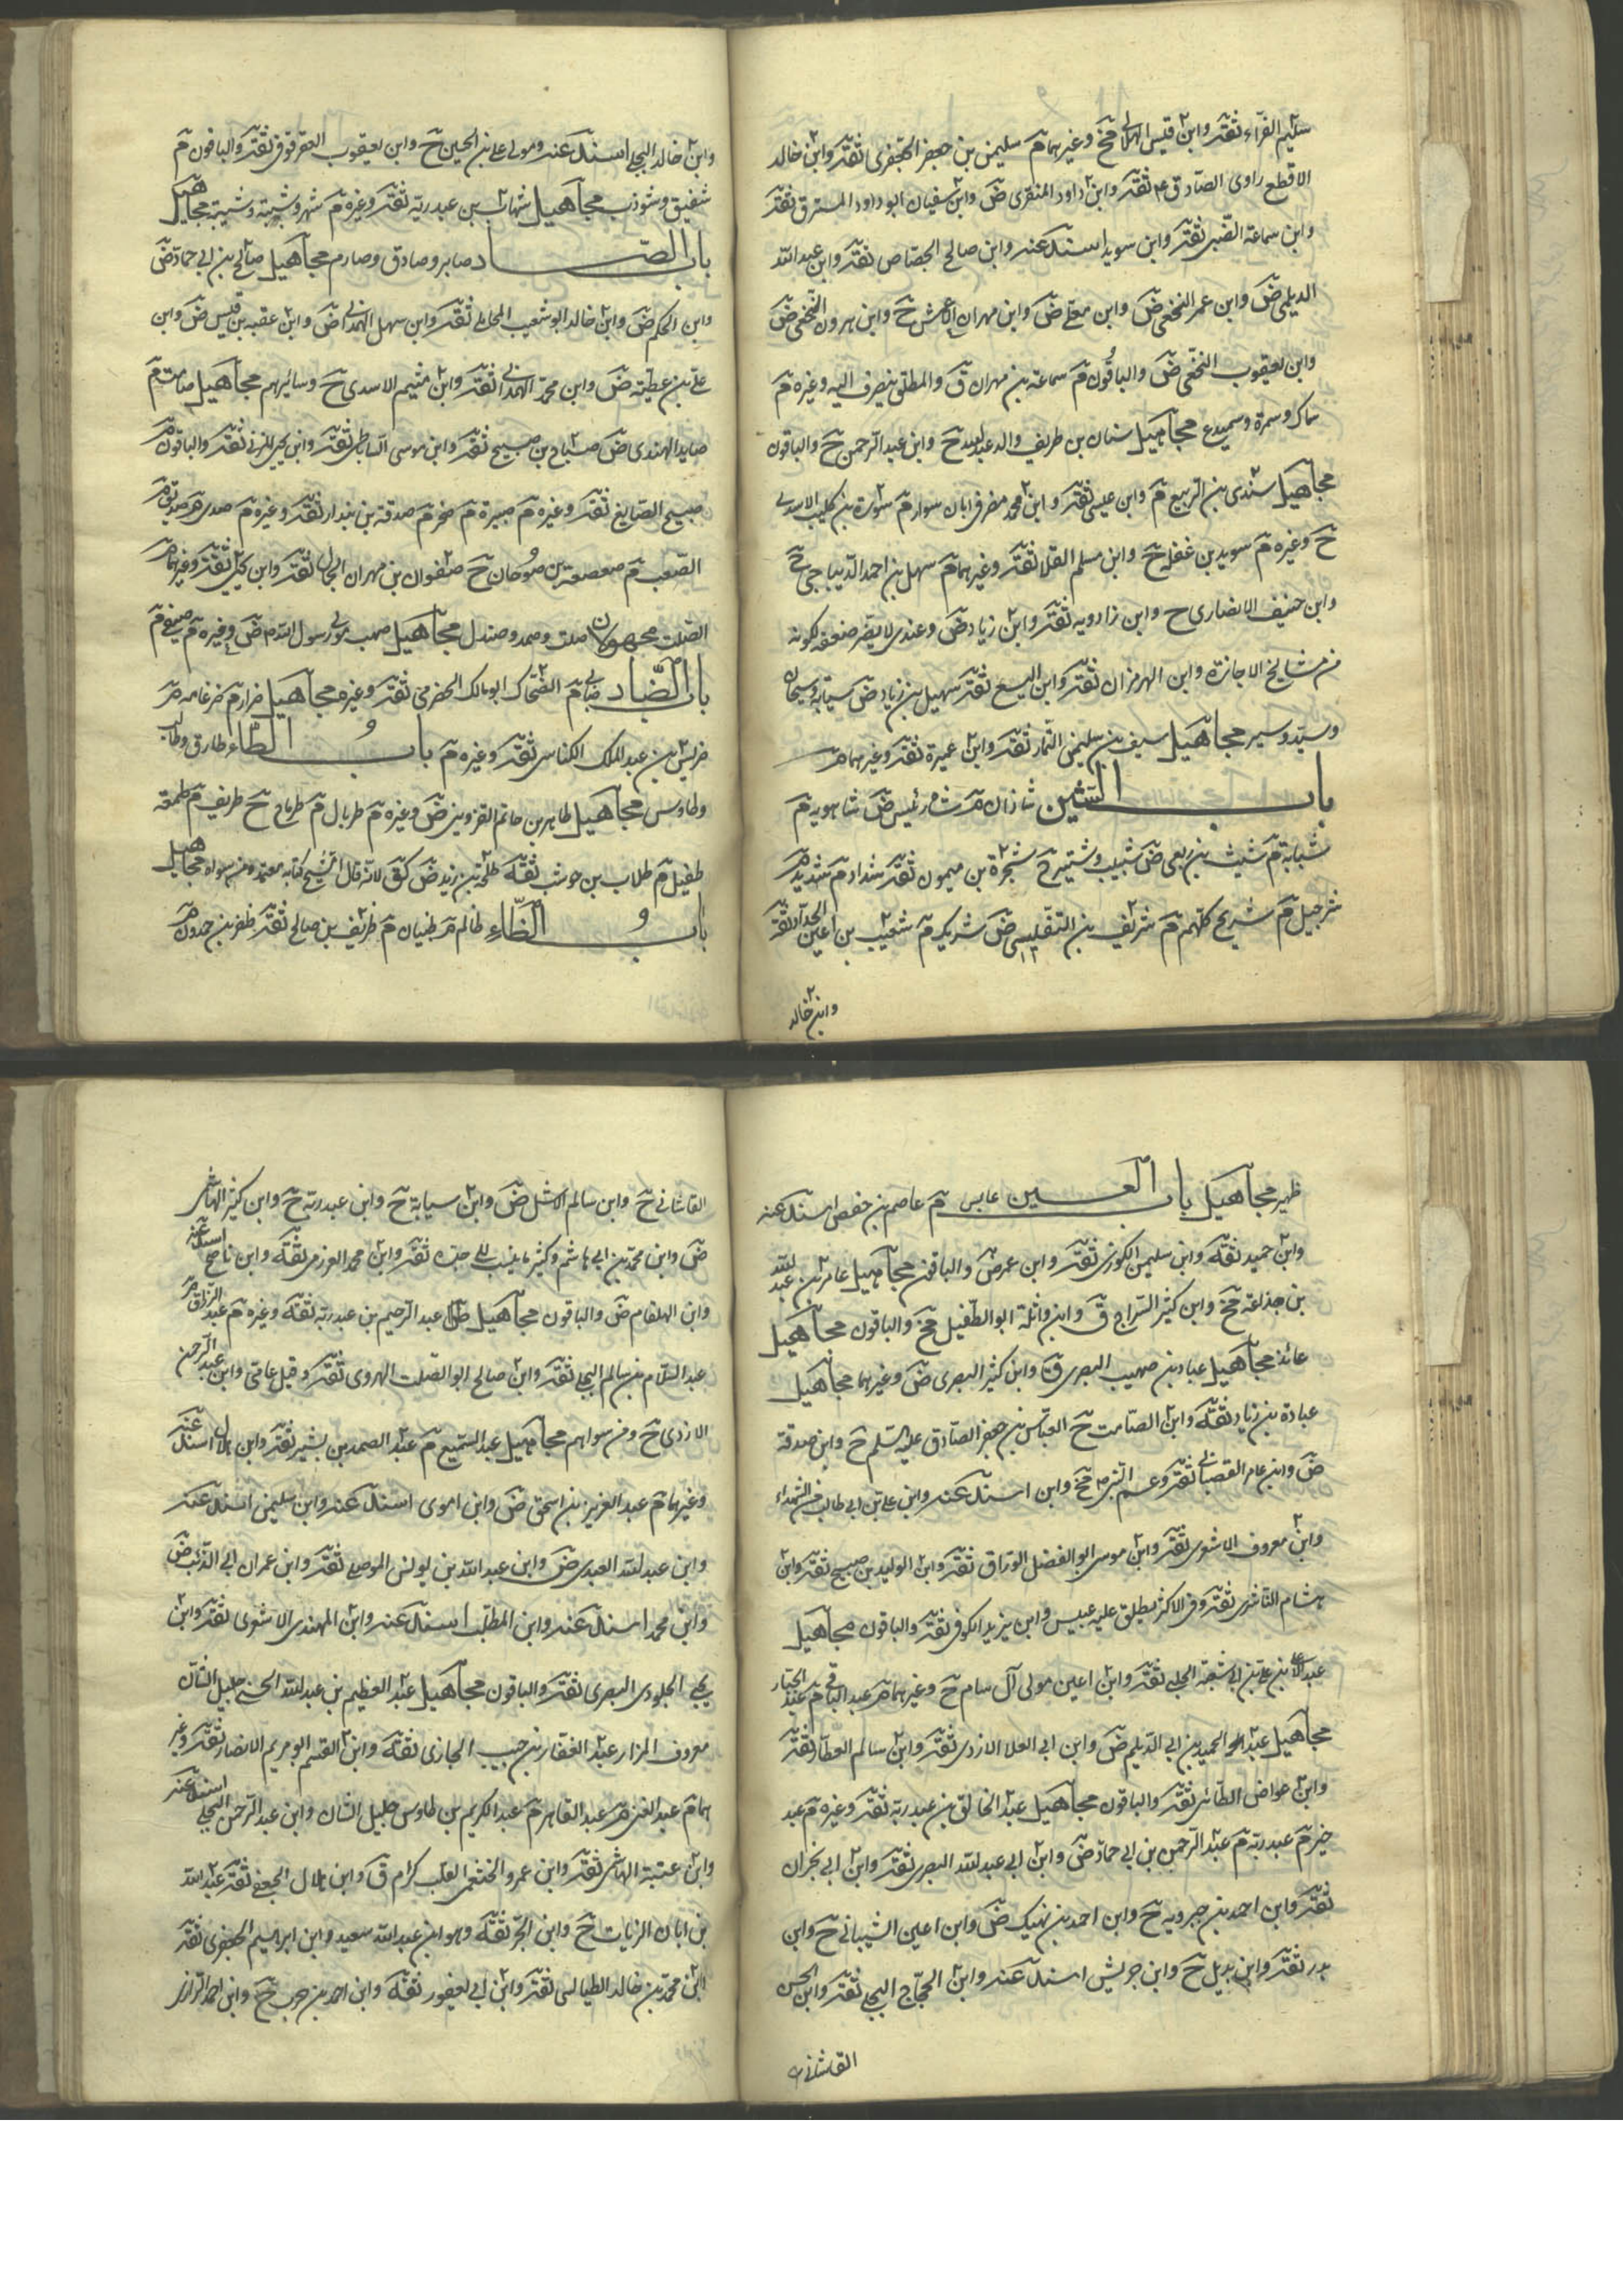 سليم الفرّاء ثقة وابن قيس الهلالي مخ وغيرهما م سليمن بن جعفر الجعفرى ثقة وابن خالد
الاقطع راوى الصّادق ع ثقة وابن داود المنقرى ض وابن سفيان ابو داود المسترق ثقة
وابن سماعة الضّبى ثقة وابن سويد اسند عنه وابن صالح الجصّاص ثقة وابن عبدالله
الديلمى ض وابن عمر النخعى ض وابن معلى ض وابن مهران الاعمش ح وابن هرون النخعى ض
وابن يعقوب النخعى ض والباقون م سماعة بن مهران ق والمطلق ينصرف اليه وغيره م
سماك وسمرة وسميدع مجاهيل سنان بن طريف والد عبدالله ح وابن عبد الرحمن ح والباقون
مجاهيل سندى بن الربيع م وابن عيسى ثقة وابن محمد مضى فى ابان سوار م سورة بن كليب الاسدى
ح وغيره م سويد بن غفلة ح وابن مسلم القلا ثقة وغيرهما م سهل بن احمد الديباجى ح
وابن حنيف الانصارى ح وابن زادويه ثقة وابن زياد ض وعندى لا يضر ضعفه لكونه
من مشايخ الاجازة وابن الهرمزان ثقة وابن اليسع ثقة سهيل بن زياد ض سيابة وسيحان
وسيّد وسير مجاهيل سيف بن سليمن التمار ثقة وابن عميرة ثقة وغيرهما م
باب الشين شاذان م شاه رئيس ض شاهويه م
شبابة م شبث بن ربعى ض شبيب وشتير ح شجرة بن ميمون ثقة شداد م شديد م
شرحبيل م شريح كلهم م شريف بن التفليسى ض شريك م شعيب بن اعين الحداد ثقة
وابن خالد
وابن خالد البجلى اسند عنه ومولى على بن الحسين ح وابن يعقوب العقرقوفى ثقة والباقون م
شفيق وشوذب مجاهيل شهاب بن عبدربه ثقة وغيره م شهر وشيبة وشيبة مجاهيل
باب الصّاد صابر وصادق وصارم مجاهيل صالح بن ابى حماد ض
وابن الحكم ض وابن خالد ابو شعيب المحاملى ثقة وابن سهل الهمدانى ض وابن عقبة بن قيس ض وابن
على بن عطية ض وابن محمد الهمدانى ثقة وابن ميثم الاسدى ح وسائرهم مجاهيل صامت م
صايد الهندى ض صباح بن صبيح ثقة وابن موسى الساباطى ثقة وابن يحيى المزنى ثقة والباقون م
صبيح الصايغ ثقة وغيره م صبيرة م صخر م صدقة بن بندار ثقة وغيره م صدى م صديق م
الصّعب م صعصعة بن صوحان ح صفوان بن مهران الجمال ثقة وابن يحيى ثقة وغيرهما م
الصّلت مجهولان صلت وصمد وصندل مجاهيل صهيب مولى رسول الله ص ض وغيره م صيفى م
باب الضّاد ضبابى م الضحّاك ابو مالك الحضرمى ثقة وغيره مجاهيل ضرار م ضرغامه م
ضريس بن عبد الملك الكناسى ثقة وغيره م باب الطّاء طارق وطالب
وطاوس مجاهيل طاهر بن حاتم القزوينى ض وغيره م طربال م طرماح ح طريف م طعمة
طفيل م طلاب بن حوشب ثقة طلحة بن زيد ض كق لانه قال الشيخ كتابه معتمد ومن سواه مجاهيل
باب الظّاء ظالم م ظبيان م ظريف بن صالح ثقة ظفر بن حمدون م
ظهير مجاهيل باب العين عابس م عاصم بن حفص اسند عنه
وابن حميد ثقة وابن سليمن الكوزى ثقة وابن عمر ض والباقون مجاهيل عامر بن عبدالله
بن جذاعة مخ وابن كثير السراج ق وابن واثلة ابو الطفيل مخ والباقون مجاهيل
عائذ مجاهيل عباد بن صهيب البصرى ق وابن كثير البصرى ض وغيرهما مجاهيل
عبادة بن زياد ثقة وابن الصّامت ح العباس بن جعفر الصّادق عليه السّلم ح وابن صدقة
ض وابن عامر القصبانى ثقة وعم النبى ص مخ وابن اسند عنه وابن على بن ابى طالب من الشهداء
وابن معروف الاشعرى ثقة وابن موسى ابو الفضل الورّاق ثقة وابن الوليد بن صبيح ثقة وابن
هشام الناشرى ثقة وفى الاكثر يطلق عليه عبيس وابن يزيد الكوفى ثقة والباقون مجاهيل
عبدالاعلى بن على بن ابى شعبة الحلبى ثقة وابن اعين مولى آل سام ح وغيرهما م عبد الباقى م عبد الجبار
مجاهيل عبد الحميد بن ابى الديلم ض وابن ابى العلا الازدى ثقة وابن سالم العطار ثقة
وابن عواض الطّائى ثقة والباقون مجاهيل عبد الخالق بن عبدربه ثقة وغيره م عبد
خير م عبد ربه م عبد الرحمن بن ابى حماد ض وابن ابى عبدالله البصرى ثقة وابن ابى نجران
ثقة وابن احمد بن جبرويه ح وابن احمد بن نهيك ض وابن اعين الشيبانى ح وابن
بدر ثقة وابن بديل ح وابن جريش اسند عنه وابن الحجّاج البجلى ثقة وابن الحسن
القاشانى
القاشانى ح وابن سالم الاشل ض وابن سيابة ح وابن عبدربه ح وابن كثير الهاشمى
ض وابن محمد بن ابى هاشم وكثيرا ما ينسب الى جده ثقة وابن محمد العزرمى ثقة وابن ناصح اسند عنه
وابن الهلقام ض والباقون مجاهيل عبد الرحيم بن عبدربه ثقة وغيره م عبد الرزاق م
عبد السّلام بن سالم البجلى ثقة وابن صالح ابو الصّلت الهروى ثقة وقيل عامى وابن عبد الرحمن
الازدى ح ومن سواهم مجاهيل عبد السّميع م عبد الصمد بن بشير ثقة وابن هلال اسند عنه
وغيرهما م عبد العزيز بن اسحق ض وابن اموى اسند عنه وابن سليمن اسند عنه
وابن عبدالله العبدى ض وابن عبدالله بن يونس الموصلى ثقة وابن عمران ابى الذئب ض
وابن محمد اسند عنه وابن المطلب اسند عنه وابن المهتدى الاشعرى ثقة وابن
يحيى الجلودى البصرى ثقة والباقون مجاهيل عبد العظيم بن عبدالله الحسنى جليل الشان
معروف المزار عبد الغفار بن حبيب الجازى ثقة وابن القسم ابو مريم الانصارى ثقة وغير
هما م عبد الغنى م عبد القاهر م عبد الكريم بن طاوس جليل الشان وابن عبد الرحمن البجلى اسند عنه
وابن عتبة الهاشمى ثقة وابن عمرو الخثعمى لقب كرام ق وابن هلال الجعفى ثقة عبدالله
بن ابان الزيات ح وابن ابجر ثقة وهو ابن عبدالله سعيد وابن ابراهيم الجعفرى ثقة
ابن محمد بن خالد الطيالسى ثقة وابن ابى يعفور ثقة وابن احمد بن حرب ح وابن احمد الرازى